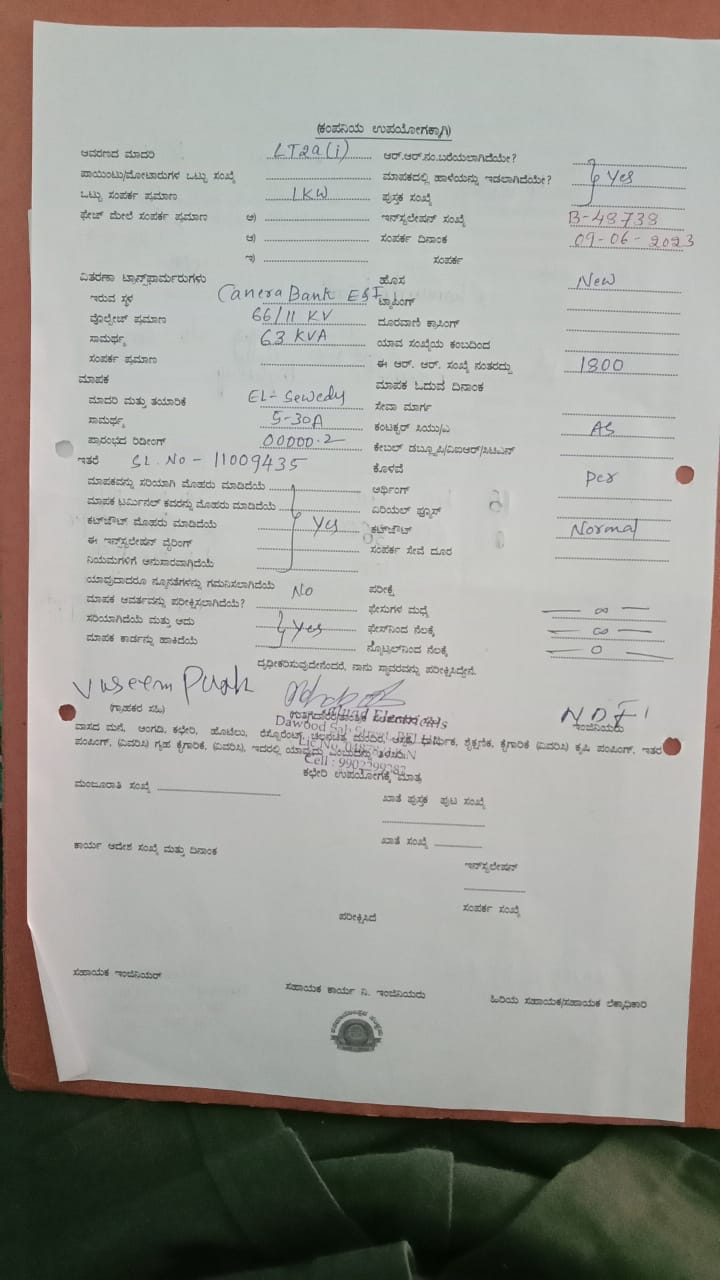 (ಕಂಪನಿಯ ಉಪಯೋಗಕ್ಕಾಗಿ)
ಆವರಣದ ಮಾದರಿ LT2a(i) ಆರ್.ಆರ್.ನಂ.ಬರೆಯಲಾಗಿದೆಯೇ?
ಪಾಯಿಂಟು/ಮೋಟಾರುಗಳ ಒಟ್ಟು ಸಂಖ್ಯೆ ಮಾಪಕದಲ್ಲಿ ಹಾಳೆಯನ್ನು ಇಡಲಾಗಿದೆಯೇ? Yes
ಒಟ್ಟು ಸಂಪರ್ಕ ಪ್ರಮಾಣ 1KW ಪುಸ್ತಕ ಸಂಖ್ಯೆ
ಫೇಜ್ ಮೇಲೆ ಸಂಪರ್ಕ ಪ್ರಮಾಣ ಅ) ಇನ್‌ಸ್ಟಲೇಷನ್ ಸಂಖ್ಯೆ B-48738
ಆ) ಸಂಪರ್ಕ ದಿನಾಂಕ 09-06-2023
ಇ) ಸಂಪರ್ಕ
ವಿತರಣಾ ಟ್ರಾನ್ಸ್‌ಫಾರ್ಮರುಗಳು ಹೊಸ New
ಇರುವ ಸ್ಥಳ Canera Bank ESI ಟ್ಯಾಪಿಂಗ್
ವೊಲ್ಟೇಜ್ ಪ್ರಮಾಣ 66/11 KV ದೂರವಾಣಿ ಕ್ರಾಸಿಂಗ್
ಸಾಮರ್ಥ್ಯ 63 KVA ಯಾವ ಸಂಖ್ಯೆಯ ಕಂಬದಿಂದ
ಸಂಪರ್ಕ ಪ್ರಮಾಣ ಈ ಆರ್. ಆರ್. ಸಂಖ್ಯೆ ನಂತರದ್ದು 1800
ಮಾಪಕ ಮಾಪಕ ಓದುವ ದಿನಾಂಕ
ಮಾದರಿ ಮತ್ತು ತಯಾರಿಕೆ EL-Sewedy ಸೇವಾ ಮಾರ್ಗ
ಸಾಮರ್ಥ್ಯ 5-30A ಕಂಟಕ್ಟರ್ ಸಿಯು/ಎ AS
ಪ್ರಾರಂಭದ ರಿಡಿಂಗ್ 00000.2 ಕೇಬಲ್ ಡಬ್ಲ್ಯೂಪಿ/ವಿಐಆರ್/ಸಿಟಿಎಸ್
ಇತರೆ SL.No - 11009435 ಕೊಳವೆ
ಮಾಪಕವನ್ನು ಸರಿಯಾಗಿ ಮೊಹರು ಮಾಡಿದೆಯೆ ಅರ್ಥಿಂಗ್ per
ಮಾಪಕ ಟರ್ಮಿನಲ್ ಕವರನ್ನು ಮೊಹರು ಮಾಡಿದೆಯೆ ಏರಿಯಲ್ ಫ್ಯೂಸ್
ಕಟ್‌ಔಟ್ ಮೊಹರು ಮಾಡಿದೆಯೆ Yes ಕಟ್‌ಔಟ್ Normal
ಈ ಇನ್‌ಸ್ಟಲೇಷನ್ ವೈರಿಂಗ್ ಸಂಪರ್ಕ ಸೇವೆ ದೂರ
ನಿಯಮಗಳಿಗೆ ಅನುಸಾರವಾಗಿದೆಯೆ
ಯಾವುದಾದರೂ ನ್ಯೂನತೆಗಳನ್ನು ಗಮನಿಸಲಾಗಿದೆಯೆ No ಪರೀಕ್ಷೆ
ಮಾಪಕ ಆವರ್ತವನ್ನು ಪರೀಕ್ಷಿಸಲಾಗಿದೆಯೆ? ಫೇಸುಗಳ ಮಧ್ಯೆ ∞
ಸರಿಯಾಗಿದೆಯೆ ಮತ್ತು ಅದು Yes ಫೇಸ್‌ನಿಂದ ನೆಲಕ್ಕೆ ∞
ಮಾಪಕ ಕಾರ್ಡನ್ನು ಹಾಕಿದೆಯೆ ನ್ಯೂಟ್ರಲ್‌ನಿಂದ ನೆಲಕ್ಕೆ 0
ದೃಢೀಕರಿಸುವುದೇನೆಂದರೆ, ನಾನು ಸ್ಥಾವರವನ್ನು ಪರೀಕ್ಷಿಸಿದ್ದೇನೆ.
Vaseem Pash
(ಗ್ರಾಹಕರ ಸಹಿ) Electricals ಇಂಜಿನಿಯರು
Dawood
ವಾಸದ ಮನೆ, ಅಂಗಡಿ, ಕಛೇರಿ, ಹೊಟೇಲು, ರೆಸ್ಟೊರೆಂಟ್, ಶೈಕ್ಷಣಿಕ, ಕೈಗಾರಿಕೆ (ವಿವರಿಸಿ) ಕೃಷಿ ಪಂಪಿಂಗ್, ಇತರ
ಪಂಪಿಂಗ್, (ವಿವರಿಸಿ) ಗೃಹ ಕೈಗಾರಿಕೆ, (ವಿವರಿಸಿ), ಇದರಲ್ಲಿ
Cell :
ಕಛೇರಿ ಉಪಯೋಗಕ್ಕೆ ಮಾತ್ರ
ಮಂಜೂರಾತಿ ಸಂಖ್ಯೆ ಖಾತೆ ಪುಸ್ತಕ ಪುಟ ಸಂಖ್ಯೆ
ಖಾತೆ ಸಂಖ್ಯೆ
ಕಾರ್ಯ ಆದೇಶ ಸಂಖ್ಯೆ ಮತ್ತು ದಿನಾಂಕ
ಇನ್‌ಸ್ಟಲೇಷನ್
ಸಂಪರ್ಕ ಸಂಖ್ಯೆ
ಪರೀಕ್ಷಿಸಿದೆ
ಸಹಾಯಕ ಇಂಜಿನಿಯರ್ ಸಹಾಯಕ ಕಾರ್ಯ ನಿ. ಇಂಜಿನಿಯರು ಹಿರಿಯ ಸಹಾಯಕ/ಸಹಾಯಕ ಲೆಕ್ಕಾಧಿಕಾರಿ